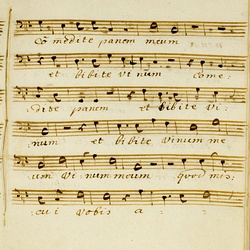 Comedite panem meum
et bibite vinum come¬
dite panem et bibite vi¬
num et bibite vinum me
um vinum meum quod mis¬
cui vobis a